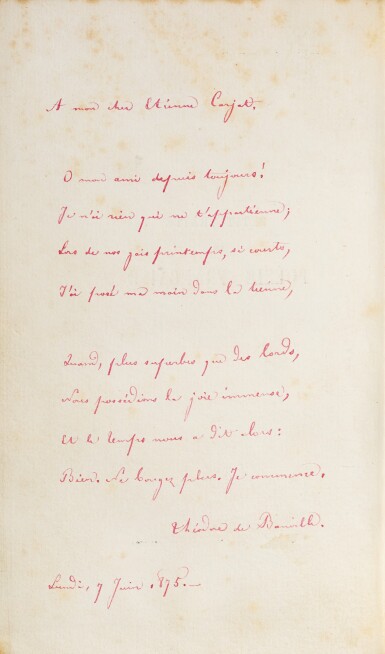 A mon cher Etienne Carjat.
O mon ami depuis toujours!
Je n'ai rien qui ne t'appartienne;
Lors de nos jolis printemps, si courts,
J'ai posé ma main dans la tienne,
Quand, plus superbes que des lords,
Nous possédions la joie immense,
Et le temps nous a dit alors:
Bien. Ne bougez plus. Je commence.
Théodore de Banville.
Lundi, 7 Juin 1875.